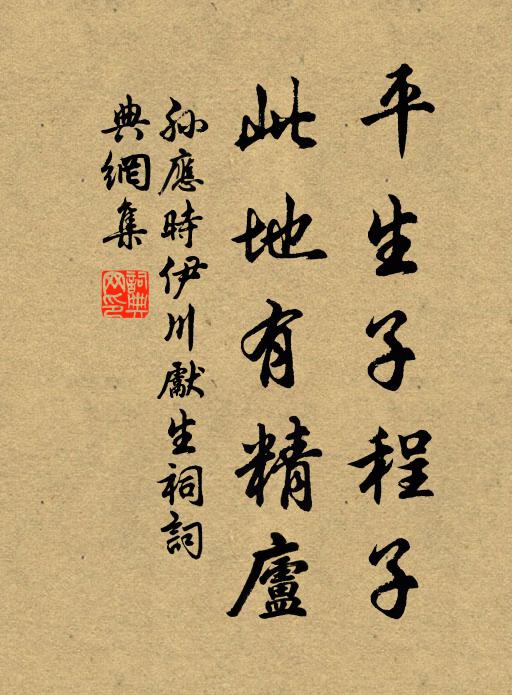 平生子程子
此地有精廬
孫應時伊川獻生祠詞
典網集
詞典
网印